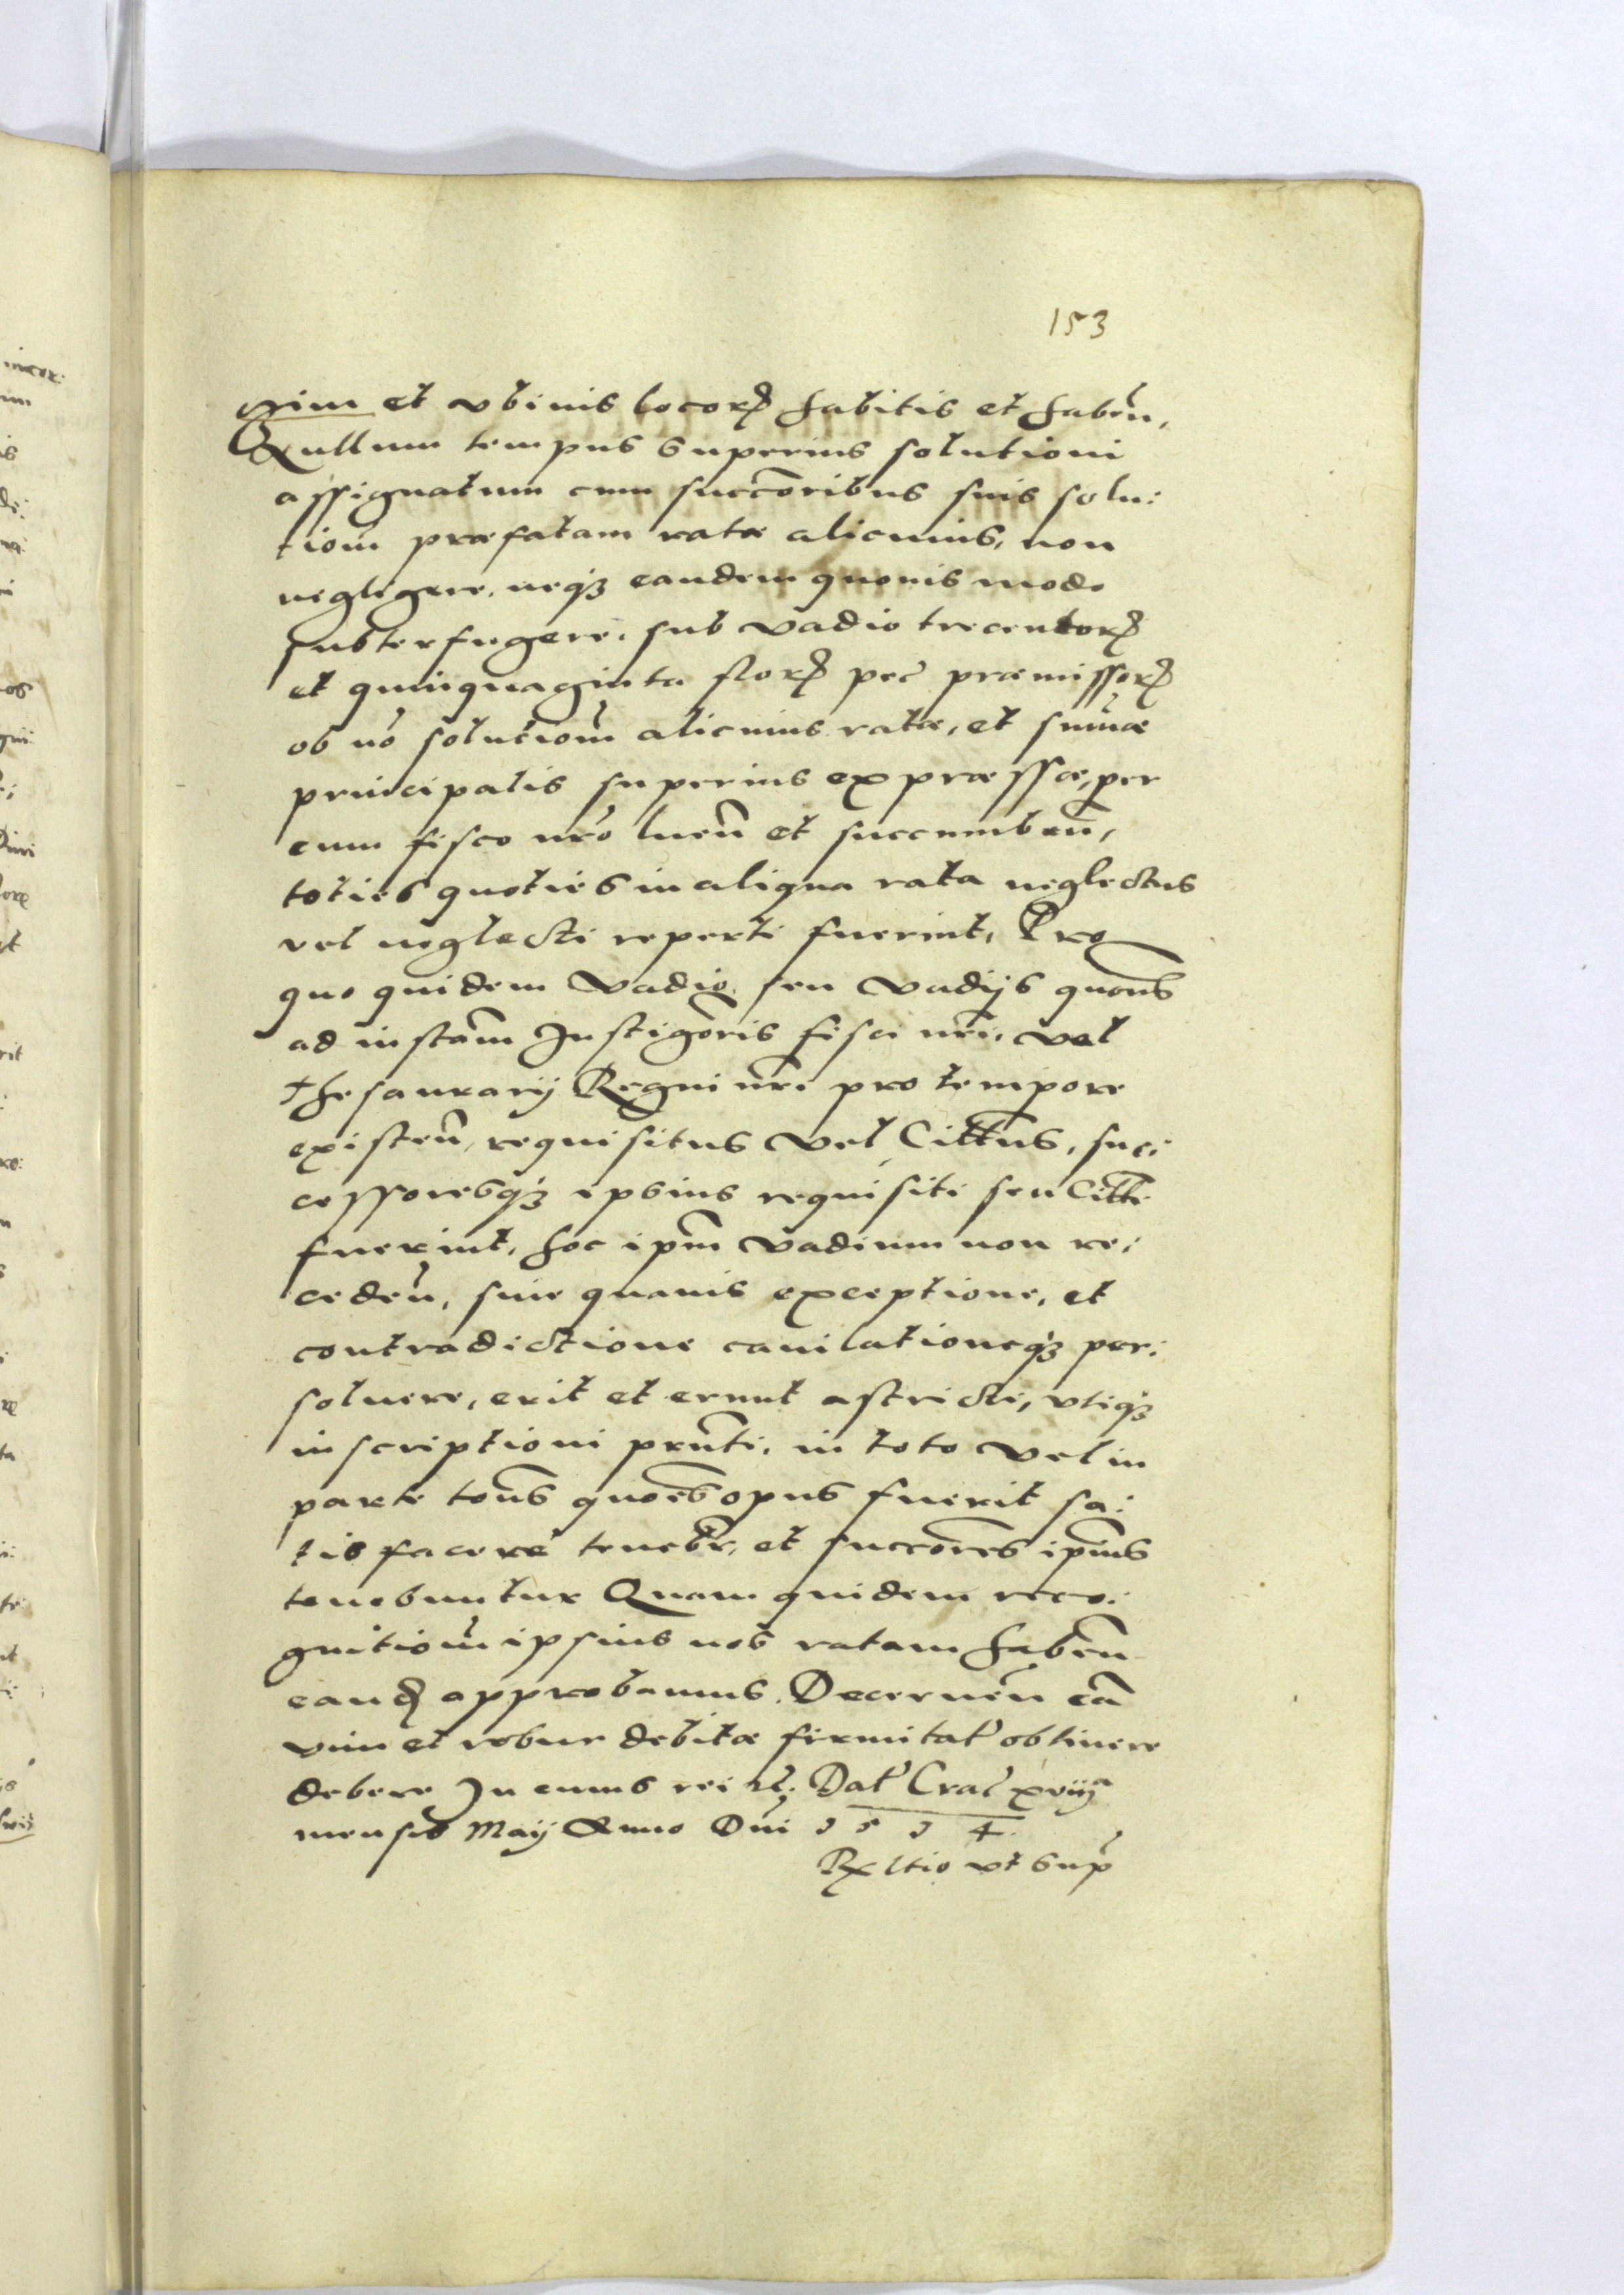 153
nium et vbiuis locor͡ habitis et haben̄,
Nullum tempus superius solutioni
assignatum cum succ̄oribus suis solu:
tiom̄ præfatam ratæ alicuius, non
negligere, neqꝫ eandem quouis modo
subterfugere, sub vadio trecentor͡
et quinquaginta flor͡ pec̄ præmissor͡
ob nō solutiom̄ alicuius ratæ, et sum̄æ
principalis superius expræssæ, per
eum fisco nr̄o luen̄ et succumben̄,
toties quoties in aliqua rata neglectus
vel neglecti reperti fuerint, Pro
quo quidem vadio, seu vadijs quon̄s
ad instam̄ Instigōris fisci nr̄i, vel
Thesaurarij Regni nr̄i pro tempore
existen̄, requisitus vel Citt̄us, suc:
cessoresqꝫ ipsius requisiti seu Citt̄i
fuerint, hoc ip̄m vadium non re:
ceden̄, sine quauis exceptione, et
contradictione cauilationeqꝫ per:
soluere, erit et erunt astricti, vtiqꝫ
inscriptioni prn̄ti, in toto vel in
parte ton̄s quoēs opus fuerit sa:
tisfacere teneb̄r, et succōres ip̄ius
tenebuntur Quam quidem reco:
gnitiom̄ ipsius nos ratam haben̄
eand͡ approbamus. Decernen̄ eā
vim et robur debitæ firmitat̄ obtinere
debere In cuius rei tꝫ. Dat̄ Crac̄ xviija
mensis Maij Anno Dn̄i 1 5 7 4.
Rel̄tio vt sup̄